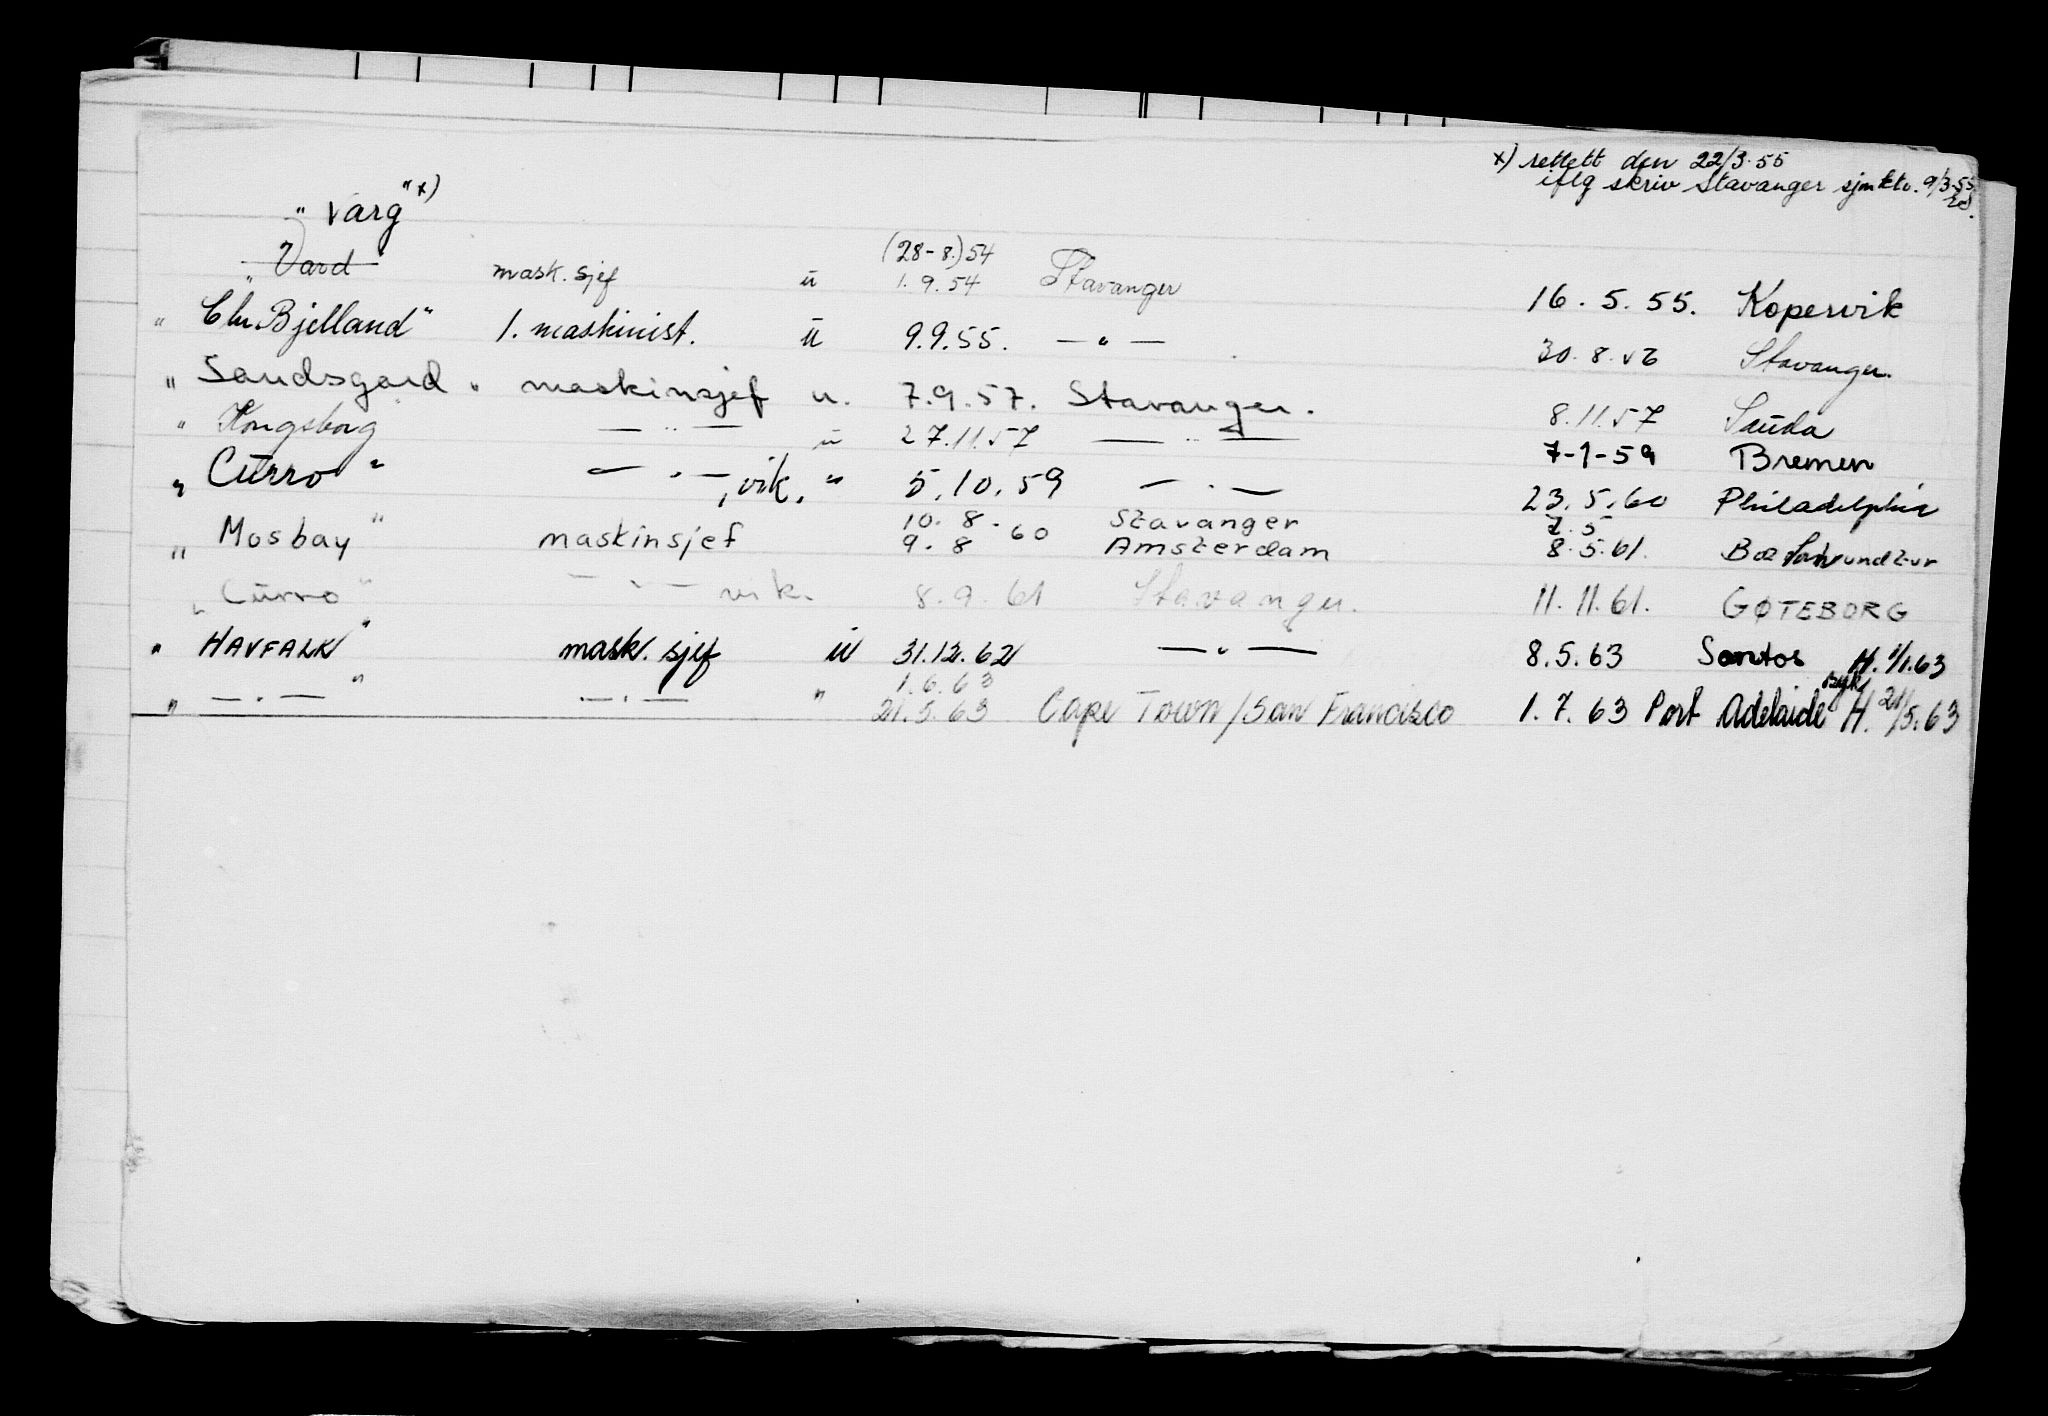 x) rettett den 22/3.55
iflg skriv Stavanger sjmktr. 9/3.55
"Varg" x)
"Vard mask. sjef u (28-8.)54 1.9.54 Stavanger 16.5.55. Kopervik
"Chr. Bjelland" 1. maskinist. u 9.9.55. — " — 30.8.56 Stavanger.
"Sandsgard" maskinsjef u. 7.9.57. Stavanger. 8.11.57 Sauda
"Kongsborg — " — u 27.11.57 — " — 7-1-59 Bremen
"Curro" — " —, vik. " 5.10.59 — " — 23.5.60 Philadelphia
"Mosbay" maskinsjef 10.8.60 Stavanger 7.5
9.8 Amsterdam 8.5.61.
"Curro" — " — vik. 8.9.61 Stavanger. 11.11.61. GØTEBORG
"HAVFALK" mask. sjef u 31.12.62 — " — 8.5.63 Santos H. 1/1.63
" — " — " — " — " 1.6.63 syk
21.5.63 Cape Town/San Francisco 1.7.63 Port Adelaide H. 21/5.63